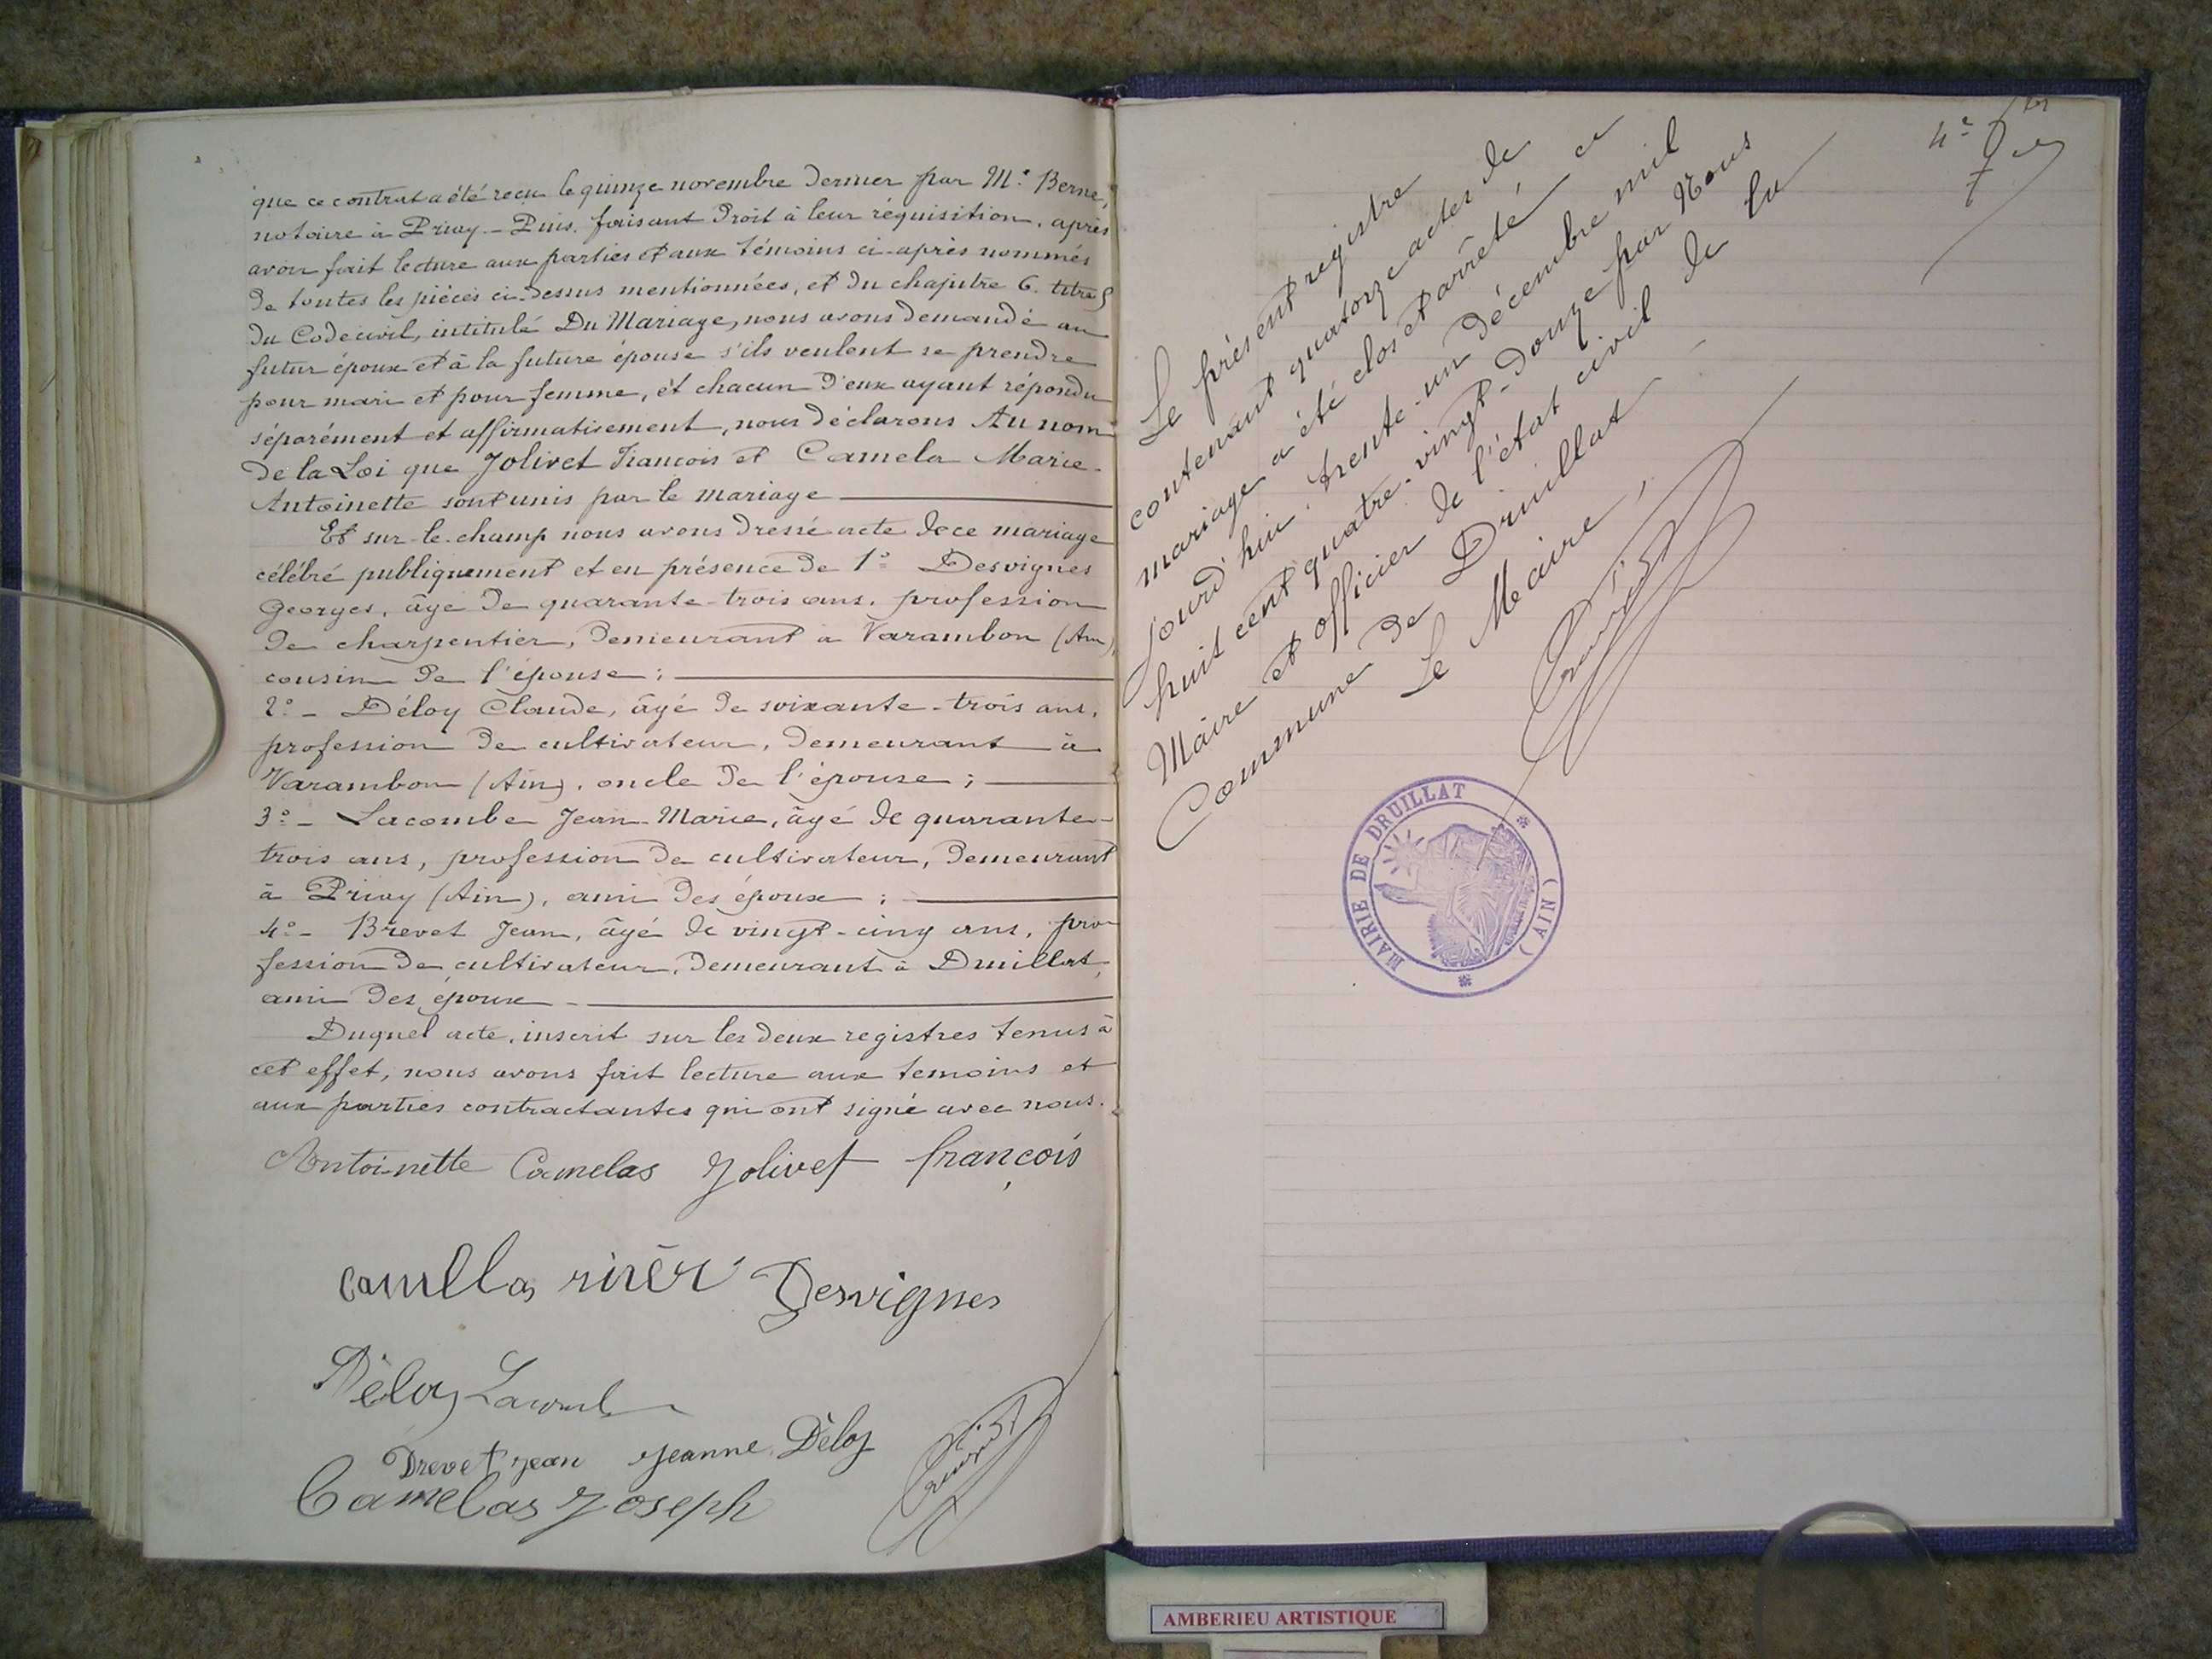 que ce contrat a été reçu le quinze novembre dernier par Me. Berne,
notaire à Priay - Puis, faisant droit à leur réquisition, après
avoir fait lecture aux parties et aux témoins ci-après nommés
de toutes les pièces ci-dessus mentionnées, et du chapitre 6. titre 5
du Code civil, intitulé Du Mariage, nous avons demandé au
futur époux et à la future épouse s'ils veulent se prendre
pour mari et pour femme, et chacun d'eux ayant répondu
séparément et affirmativement, nous déclarons Au nom
de la Loi que Jolivet François et Camela Marie-
Antoinette sont unis par le mariage
Et sur-le-champ nous avons dressé acte de ce mariage
célébré publiquement et en présence de 1° Desvignes
Georges, âgé de quarante-trois ans, profession
de charpentier, demeurant à Varambon (Ain),
cousin de l'épouse ;
2° - Déloy Claude, âgé de soixante-trois ans,
profession de cultivateur, demeurant à
Varambon (Ain), oncle de l'épouse ;
3° - Lacombe Jean-Marie, âgé de quarante-
trois ans, profession de cultivateur, demeurant
à Priay (Ain), ami des époux ;
4° - Brevet Jean, âgé de vingt-cinq ans, pro-
fession de cultivateur, demeurant à Druillat,
ami des époux -
Duquel acte, inscrit sur les deux registres tenus à
cet effet, nous avons fait lecture aux temoins et
aux parties contractantes qui ont signé avec nous.
Antoinette Camelas Jolivet françois
Desvignes
Déloy
Drevet jean jeanne Déloy
Camelas Joseph
4e
Le présent registre
contenant quatorze actes de
mariage a été clos et arrêté ce
jourd'hui, trente-un décembre mil
huit cent quatre-vingt-douze par Nous
Maire et officier de l'état civil de la
Commune de Druillat
Le Maire,
MAIRIE DE DRUILLAT
(AIN)
AMBERIEU ARTISTIQUE